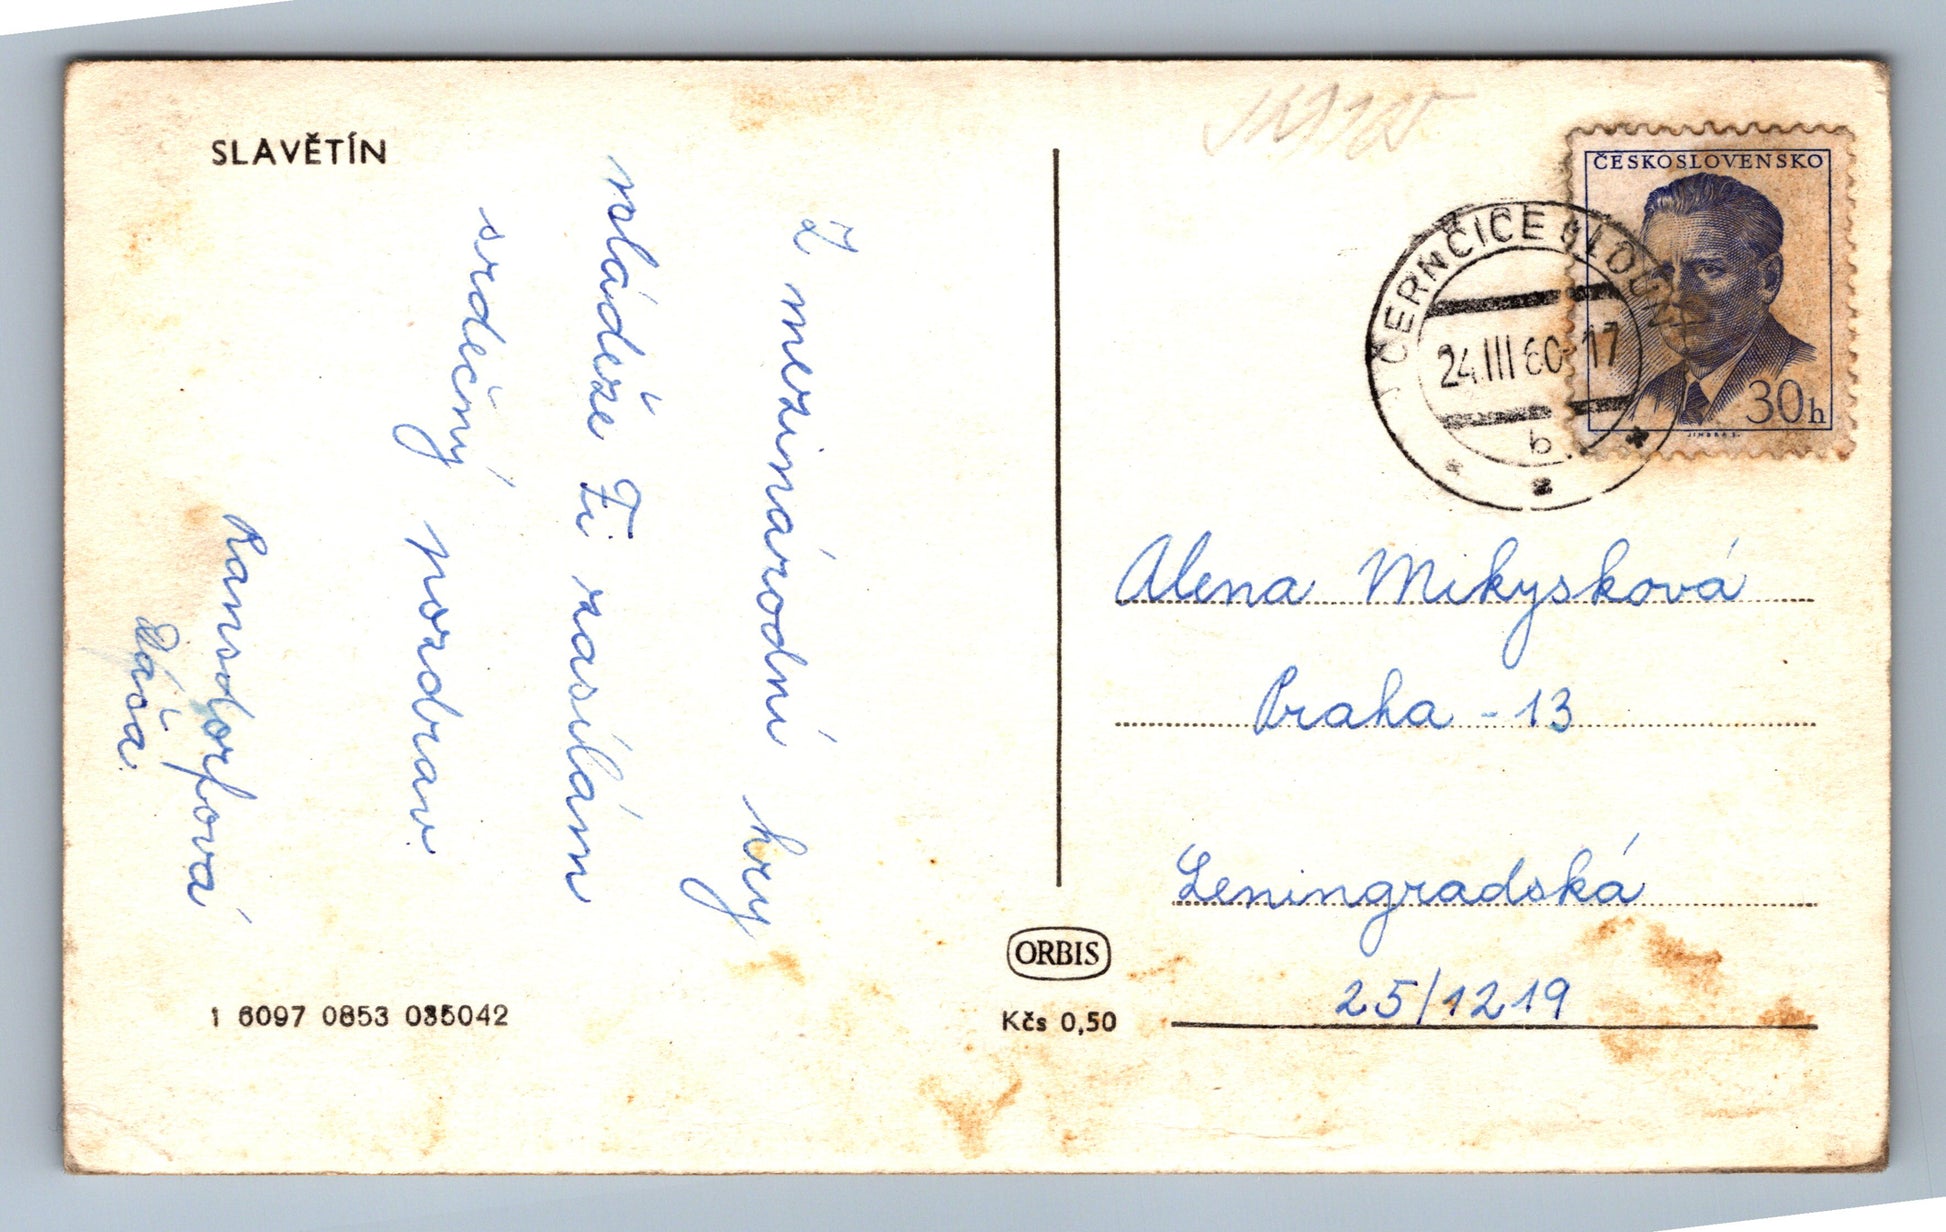 SLAVĚTÍN
Z mezinárodní hry
mládeže Ti zasílám
srdečný pozdrav.
Ramsdorfová
Dáša.
1 6097 0853 035042
ORBIS
Kčs 0,50
ČESKOSLOVENSKO
30h
JINDRA S.
ČERNČICE U LOUN
24.III 60-17
b
Alena Mikysková
Praha - 13
Leningradská
25/1219